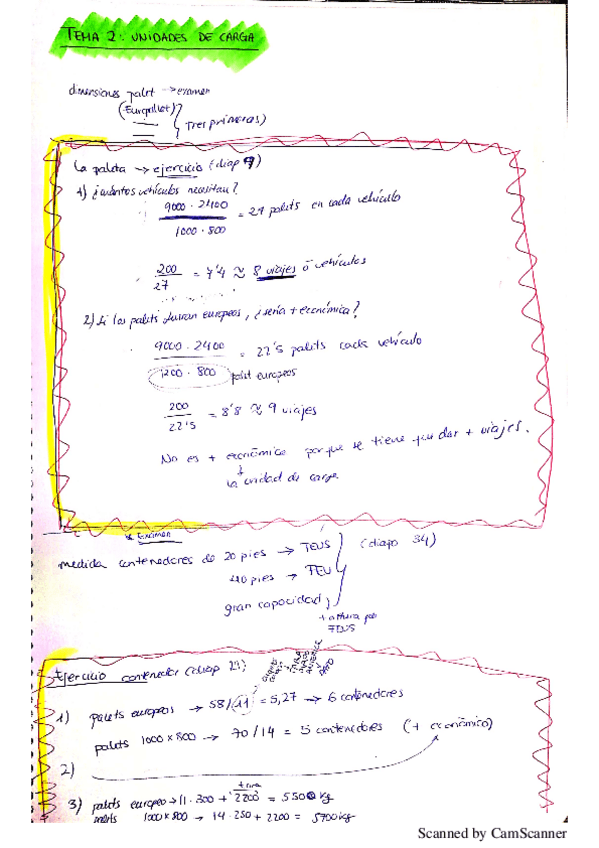 TEMA 2: UNIDADES DE CARGA
dimensiones palet → examen
(Europallet)
Tres primeras)
La paleta → ejercicio (diap 9)
1) ¿cuántos vehículos necesitan?
9000 · 2400
= 27 palets en cada vehículo
1000 · 800
200
= 7'4 ≈ 8 viajes o vehículos
27
2) Si los palets fueran europeos, ¿sería + económico?
9000 · 2400
= 22'5 palets cada vehículo
1200 · 800 palet europeos
200
= 8'8 ≈ 9 viajes
22'5
No es + económico porque se tiene que dar + viajes.
la unidad de carga.
Examen
medida contenedores de 20 pies → TEUS (diapo 34)
40 pies → FEU
gran capacidad
+ altura que
TEUS
Ejercicio contenedor (diap 29)
1) palets europeos → 58/11 = 5,27 → 6 contenedores
palets 1000 x 800 → 70/14 = 5 contenedores (+ económico)
2)
tara
3) palets europeo → 11 · 300 + 2200 = 5500 kg
palets 1000 x 800 → 14 · 250 + 2200 = 5700 kg
Scanned by CamScanner